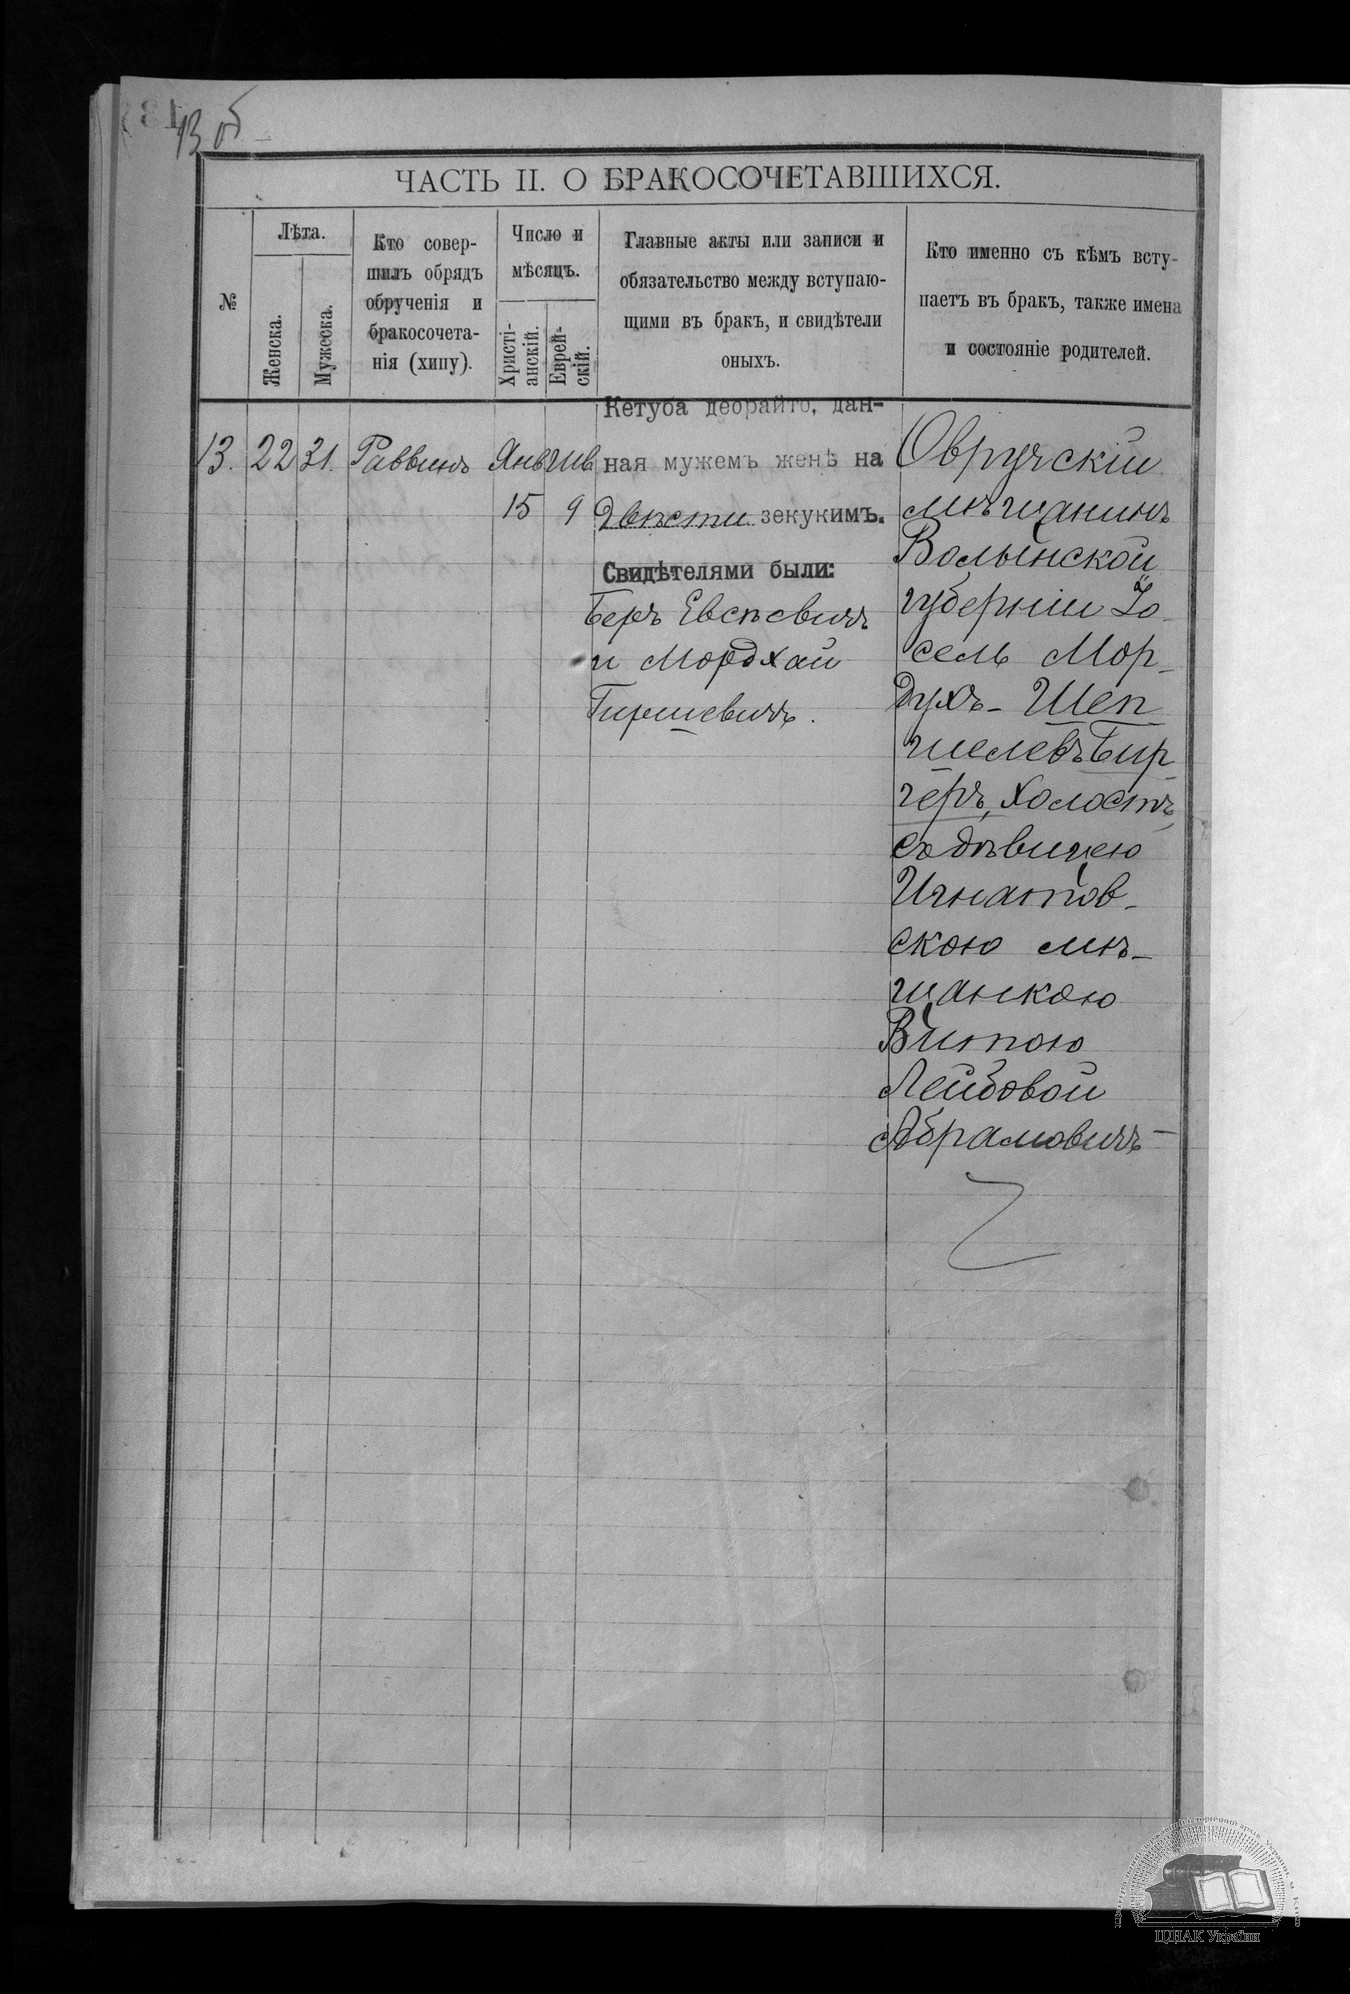 13 об
ЧАСТЬ II. О БРАКОСОЧЕТАВШИХСЯ.
№
Лѣта.
Женска.
Мужеска.
Кто совер-
шилъ обрядъ
обрученія и
бракосочета-
нія (хипу).
Число и
мѣсяцъ.
Христі-
анскій.
Еврей-
скій.
Главные акты или записи и
обязательство между вступаю-
щими въ бракъ, и свидѣтели
оныхъ.
Кто именно съ кѣмъ всту-
паетъ въ бракъ, также имена
и состояніе родителей.
13.
22
31.
Раввинъ
Янв
15
Шв
9
Кетуба деорайто, дан-
ная мужемъ женѣ на
Двѣсти зекукимъ.
Свидѣтелями были:
Беръ Евсѣевичъ
и Мордхай
Гиршевичъ.
Овручскій
мѣщанинъ
Волынской
губерніи Іо-
сель Мор-
духъ-Шеп
шелевъ Бир
геръ, холостъ,
съ дѣвицею
Игнатов-
скою мѣ-
щанкою
Витою
Лейбовой
Абрамовичъ-
ЦДІАК України